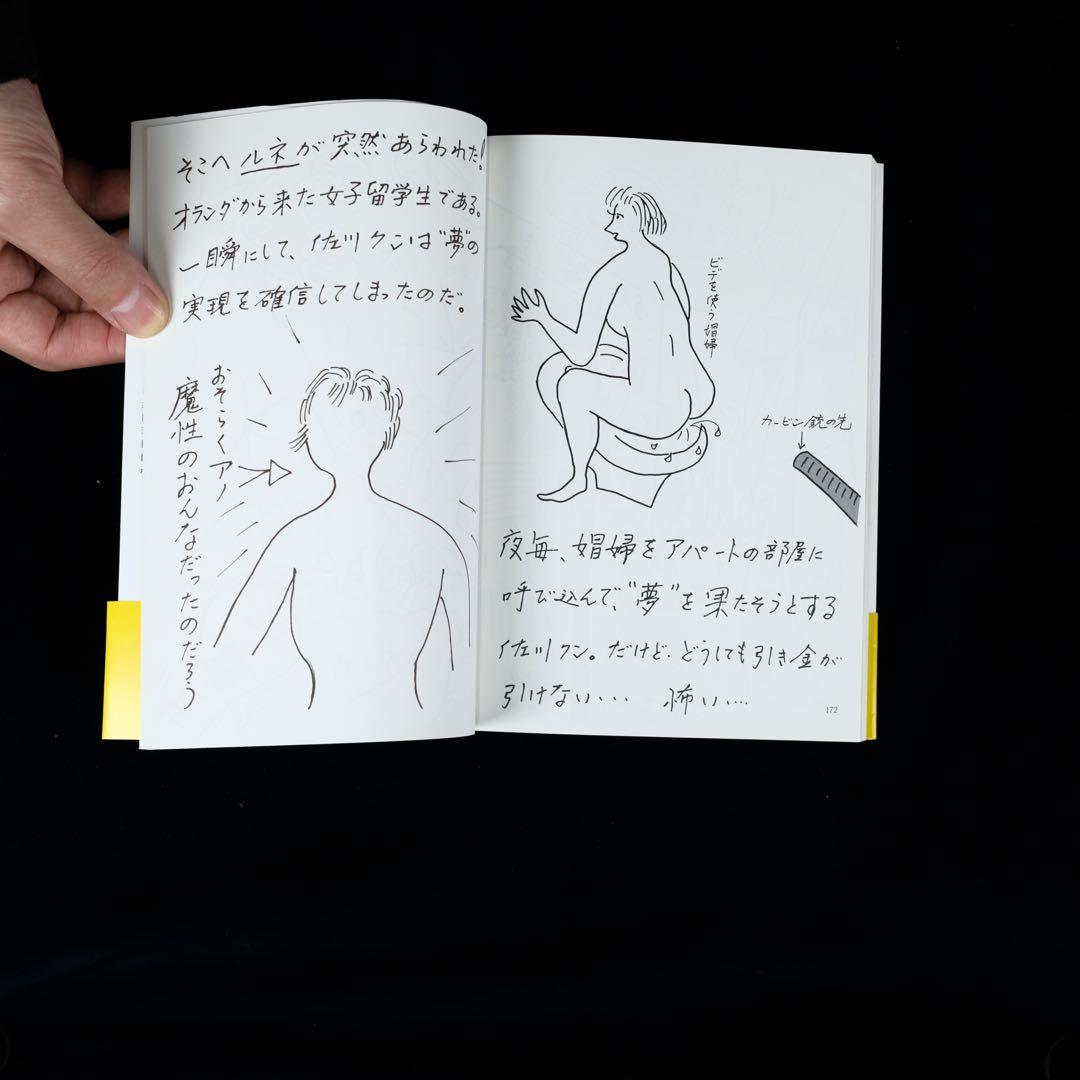 ビデを使う娼婦
カービン銃の先
夜毎、娼婦をアパートの部屋に
呼び込んで、"夢"を果たそうとする
佐川クン。だけど、どうしても引き金が
引けない・・・ 怖い・・・
172
そこへルネが突然あらわれた!
オランダから来た女子留学生である。
一瞬にして、佐川クンは"夢"の
実現を確信してしまったのだ。
おそらくアノ
魔性のおんなだったのだろう